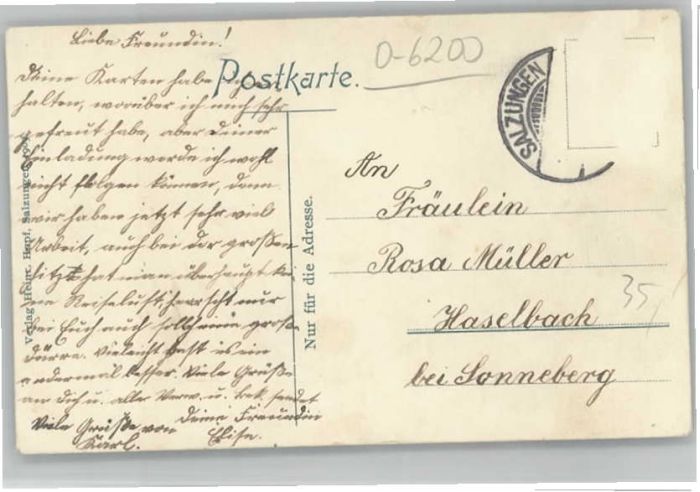 Liebe Freundin!
Deine Karten habe
halten, worüber ich mich sehr
gefreut habe, aber deiner
Einladung werde ich wohl
nicht folgen können, denn
wir haben jetzt sehr viel
Arbeit, auch bei der großen
Hitze hat man überhaupt kei
ne Reiselust, herrscht nur
bei Euch auch solch eine große
Dürre. Vielleicht paßt es ein
andermal besser. Viele Grüße
an dich u. alle Verw. u. Bek. sendet
Deine Freundin
Elise.
Viele Grüße von
Karl.
Postkarte.
0-6200
SALZUNGEN
Nur für die Adresse.
Verlag Heinr. Hopf, Salzungen
An
Fräulein
Rosa Müller
Haselbach
bei Sonneberg
35,